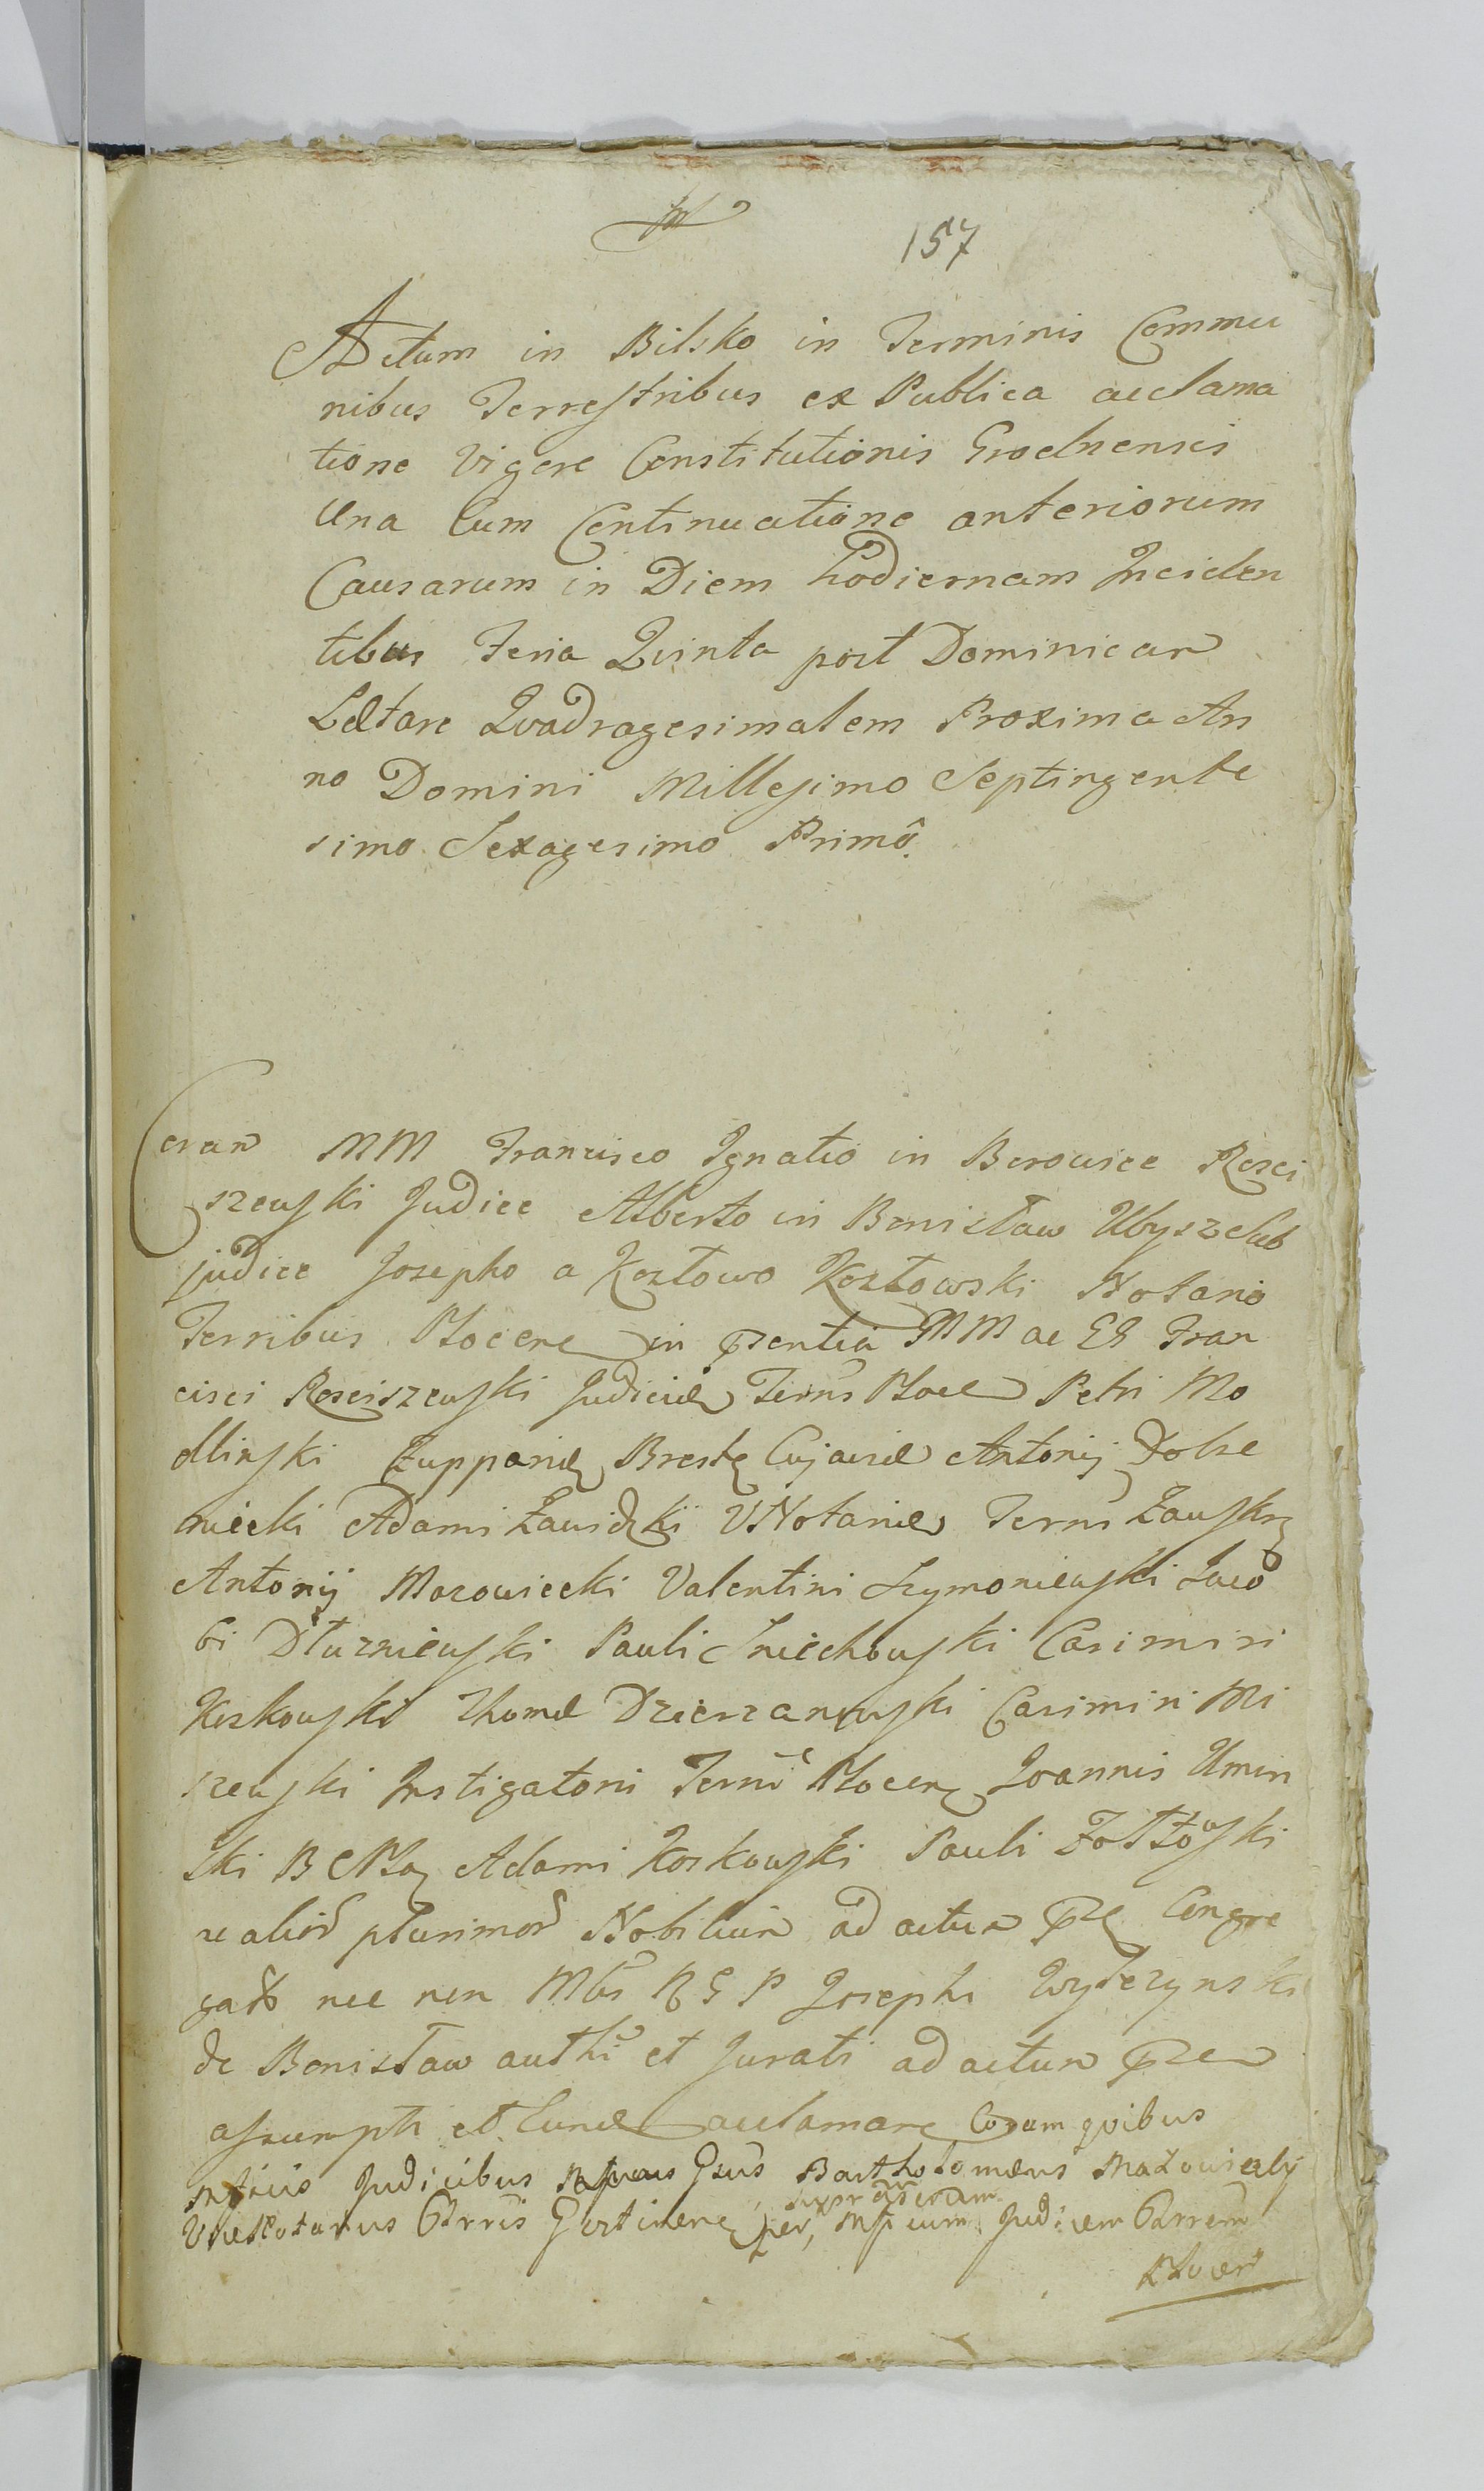 157
Actum in Bilsko in Terminis Commu
nibus Terrestribus ex Publica acclama
tione Vigore Constitutionis Grodnensis
Una Cum Continuatione anteriorum
Causarum in Diem hodiernam Inciden
tibus Feria Quinta post Dominicam
Lætare Quadragesimalem Proxima An
no Domini Millesimo Septingente
simo Sexagesimo Primô.
Coram MM Francisco Ignatio in Borowice Rosci
szewski Judice Alberto in Bonisław Ubysz Sub
judice Josepho a Kozłowo Kozłowski Notario
Terribus Plocen in pzentia MM ac GG Fran
cisci Rosciszewski Judicidæ Terris Ploc Petri Mo
dlinski Zuppariæ Breste Cujaviæ Antonij
Adami Zawidzki VNotariæ Terris Zawskrz
Antonij Mozowiecki Valentini Szymoniewski Jaco
bi Dłuzniewski Pauli Sniechowski Casimiri
Koskowski Thomæ Dzierzanowski Casimiri Mi
szewski Instigatoris Terris Plocen Joannis Umin
ski Adami Koskowski Pauli Zołtowski
ac alior plurimor Nobilium ad actum pze Congre
gator nec non Josephi
de Bonisław authi et Jurati ad actum pzen
assumpti et acclamare Coram quibus
Judicibus Gsus Bartholomæus Mazowiecky
per, Judicem
Plocen